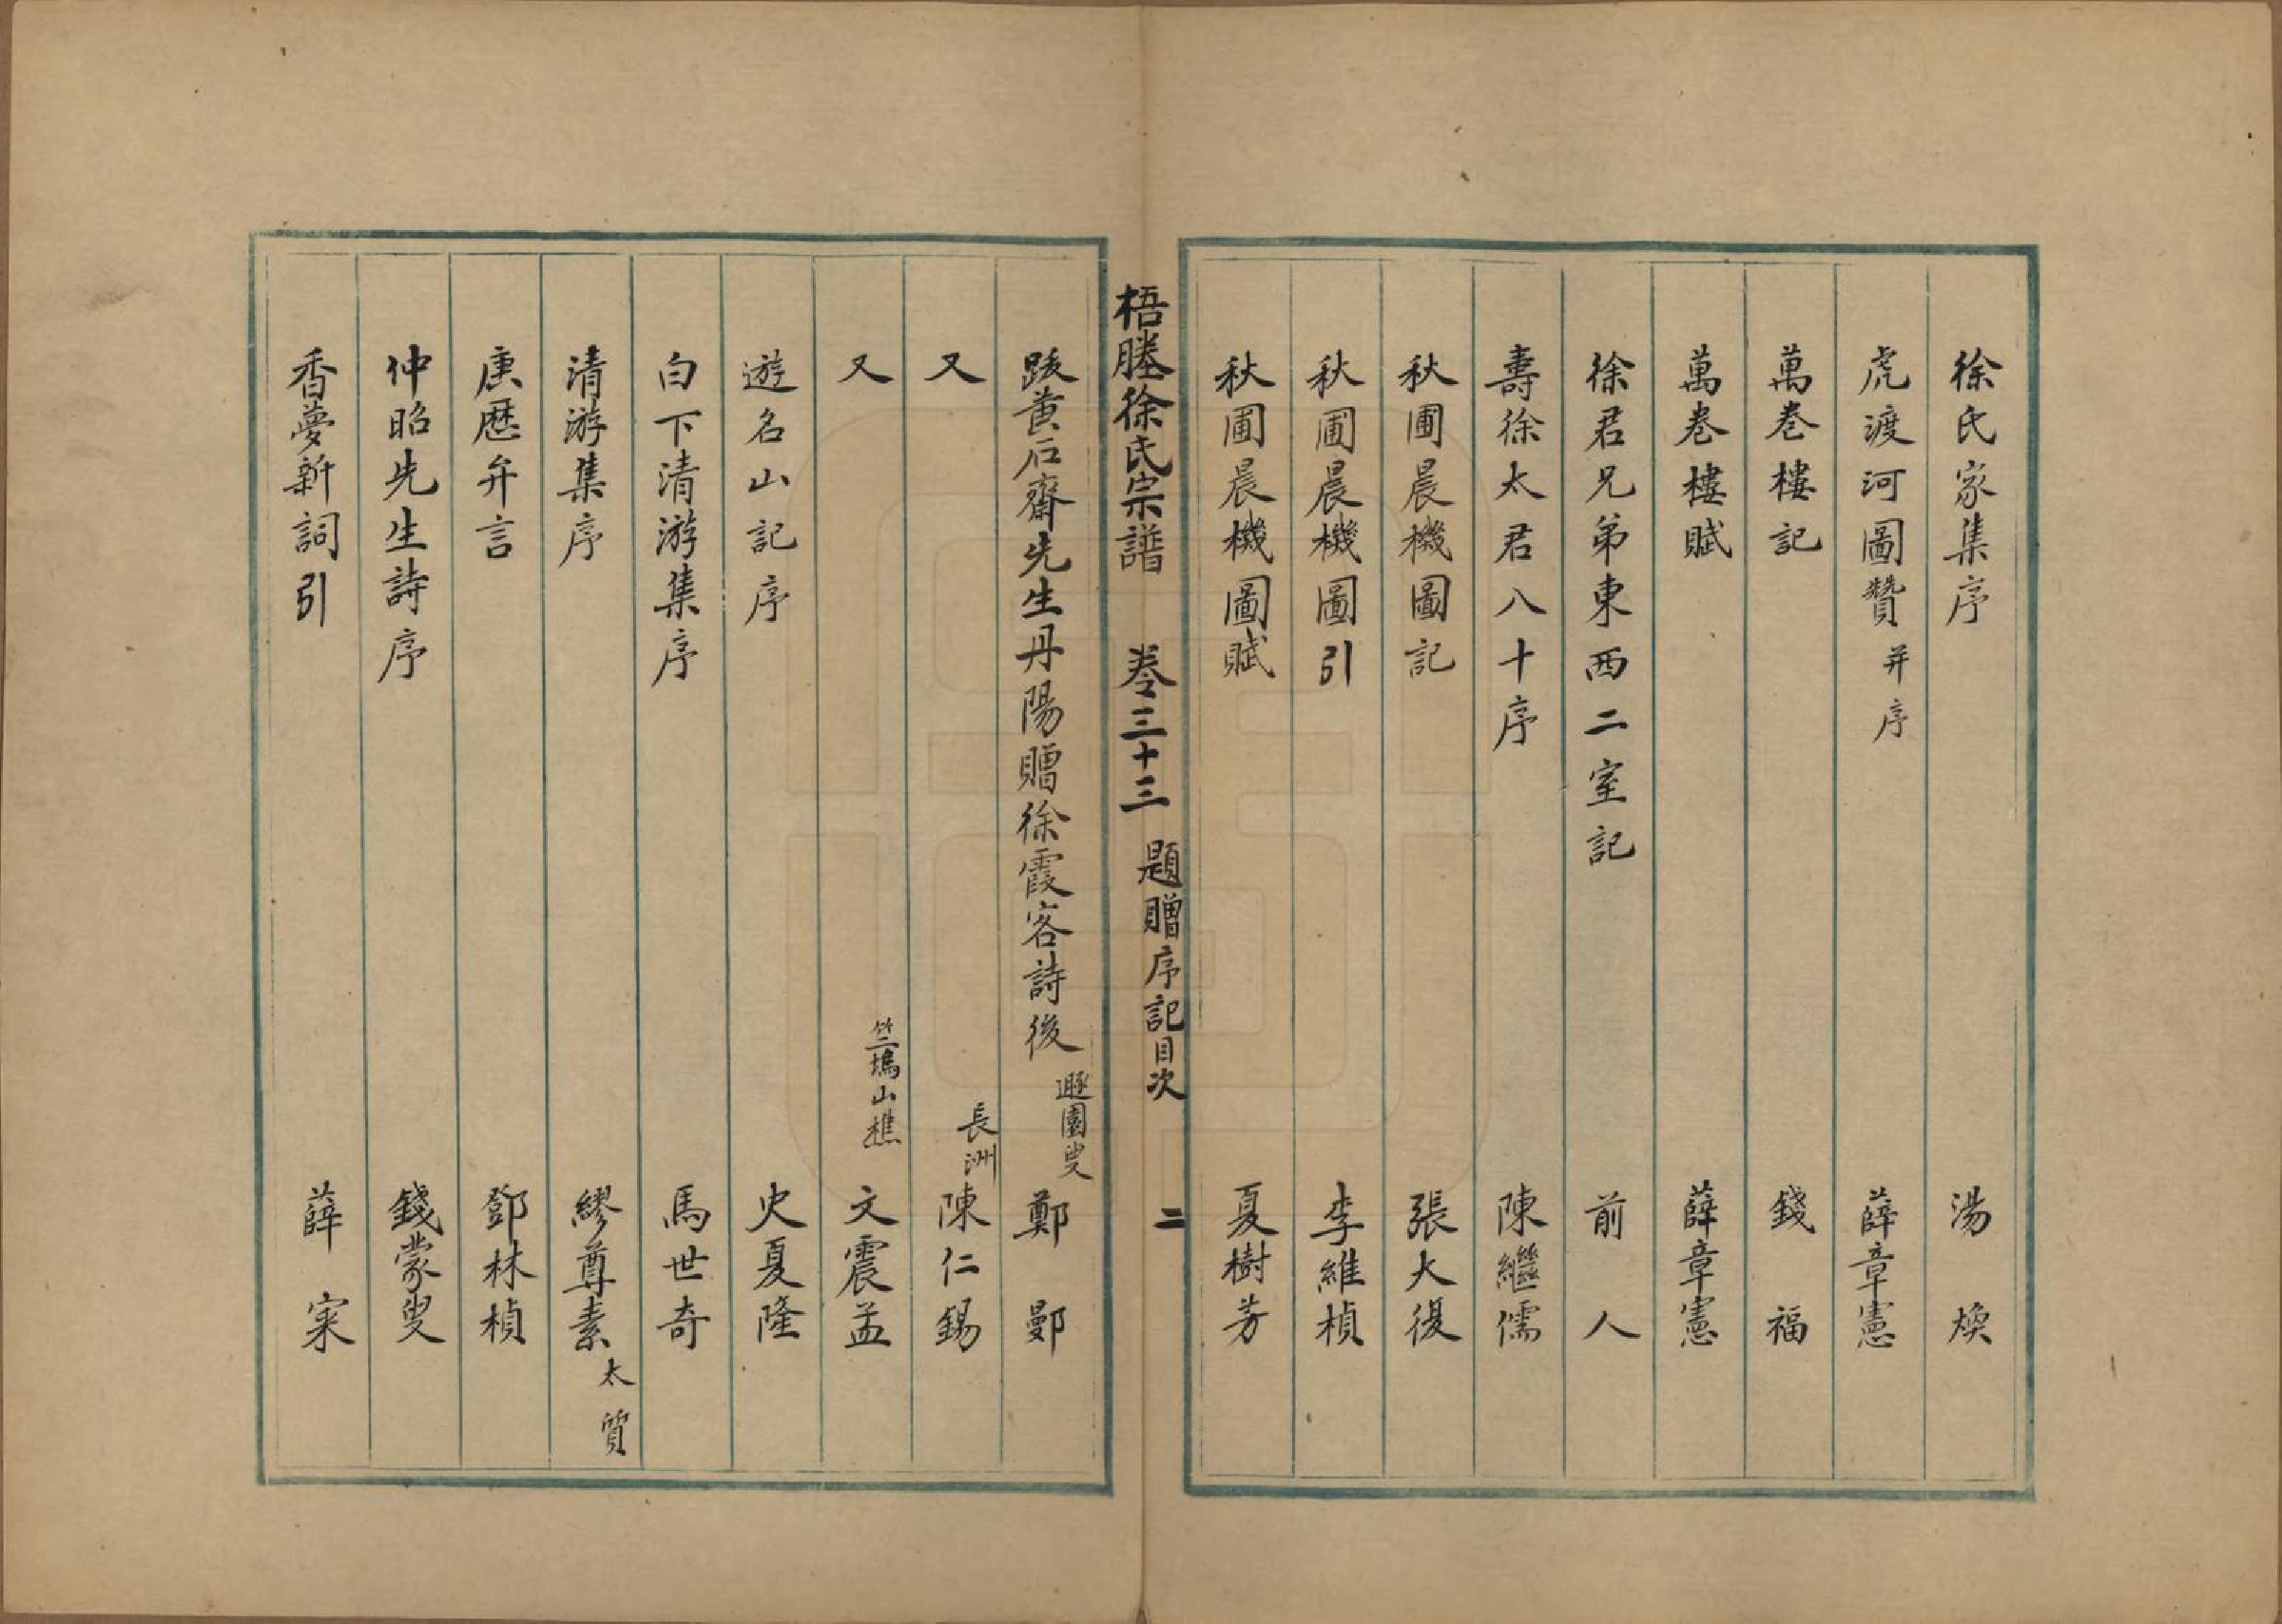 徐氏家集序 湯煥
虎渡河圖贊 并序 薛章憲
萬卷樓記 錢福
萬卷樓賦 薛章憲
徐君兄弟東西二室記 前人
壽徐太君八十序 陳繼儒
秋圃晨機圖記 張大復
秋圃晨機圖引 李維楨
秋圃晨機圖賦 夏樹芳
梧塍徐氏宗譜 卷三十三 題贈序記目次 二
跋黄石齋先生丹陽贈徐霞客詩後 遯園叟 鄭鄤
又 長洲 陳仁錫
又 竺塢山樵 文震孟
遊名山記序 史夏隆
白下清游集序 馬世奇
清游集序 繆尊素 太質
庚歴弁言 鄧林楨
仲昭先生詩序 錢蒙叟
香夢新詞引 薛寀